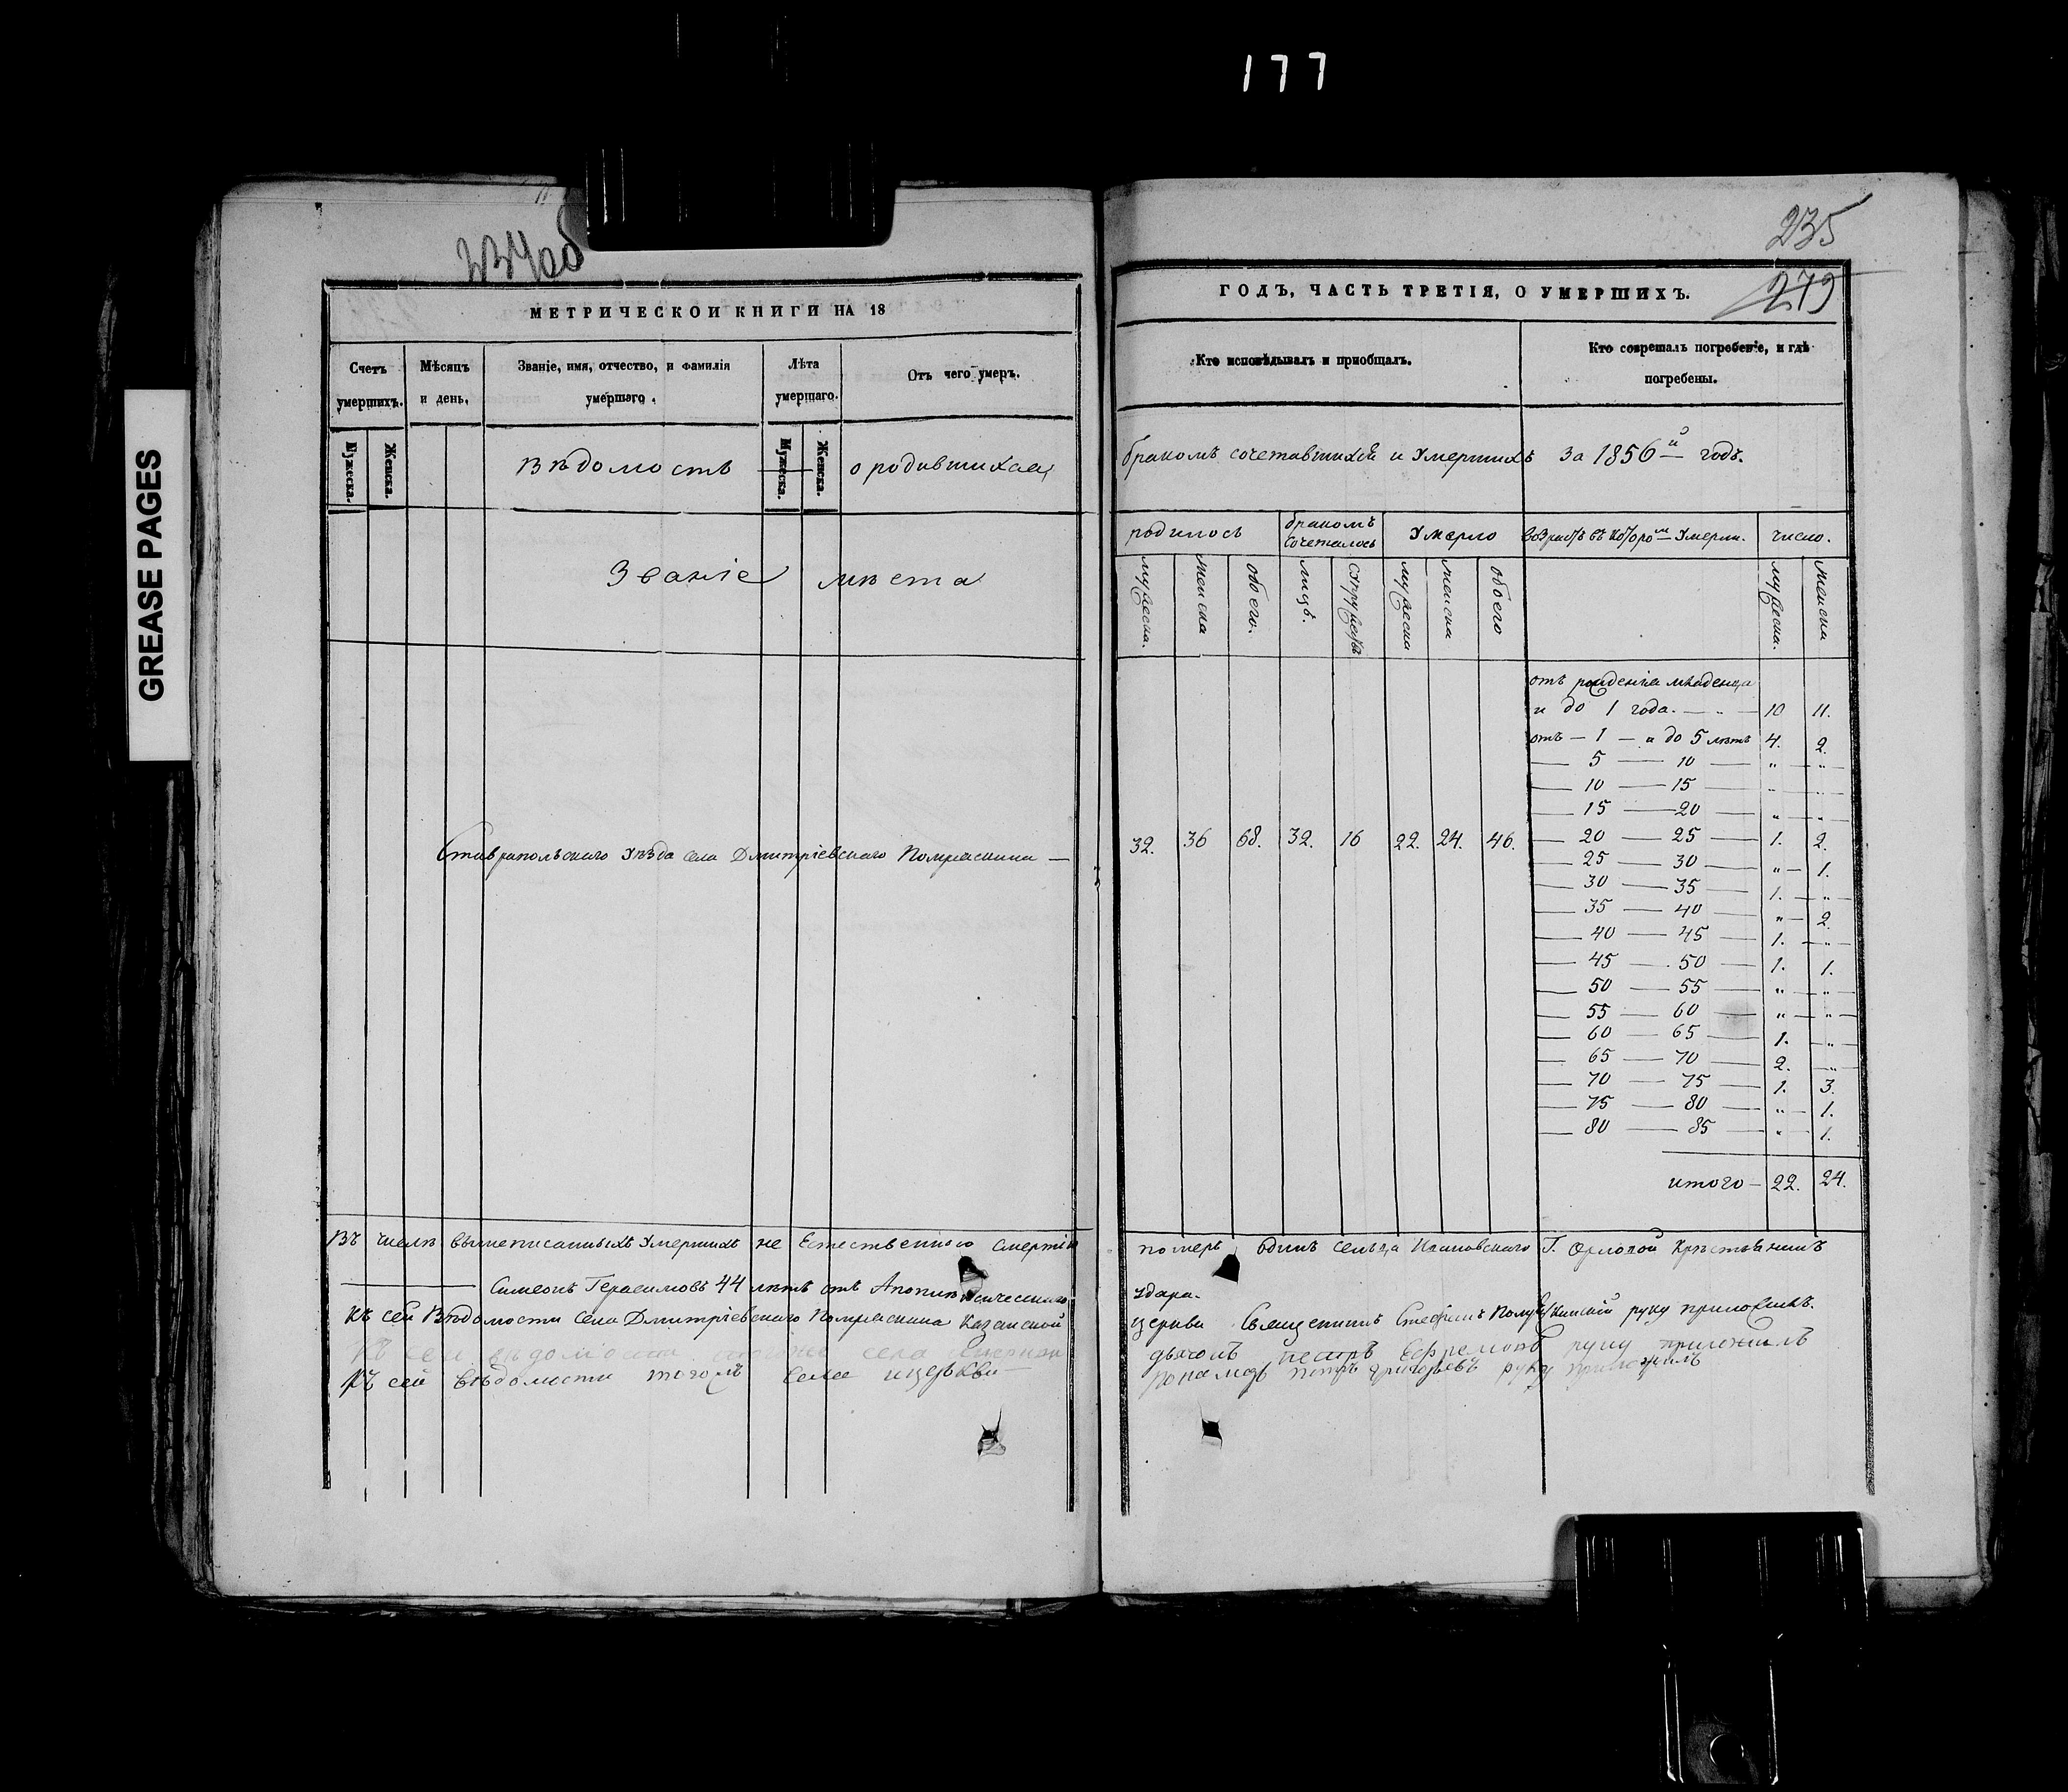 177
GREASE PAGES
234об
МЕТРИЧЕСКОЙ КНИГИ НА 18
Счетъ умершихъ.
Мужеска.
Женска.
Мѣсяцъ и день.
Званіе, имя, отчество, и фамилія умершаго.
Лѣта умершаго.
Мужеска.
Женска.
Отъ чего умеръ.
Вѣдомость о родившихся,
Званіе мѣста
Ставропольскаго уѣзда села Дмитріевскаго Помряскина —
Въ числѣ вышеписанныхъ умершихъ не Естественною смертію
Симеонъ Герасимовъ 44 лѣтъ отъ Апоплексическаго
Къ сей Вѣдомости Села Дмитріевскаго Помряскина Казанской
Къ сей вѣдомости села
Къ сей вѣдомости тогожъ села и церкви
235
279
ГОДЪ, ЧАСТЬ ТРЕТІЯ, О УМЕРШИХЪ.
Кто исповѣдывалъ и пріобщалъ.
Кто совершалъ погребеніе, и гдѣ погребены.
бракомъ сочетавшихся и умершихъ за 1856й годъ.
родилось
бракомъ сочеталось
Умерло
возрастъ въ которомъ умерли.
число.
мужеска.
женска
обоего.
лицъ.
супружествъ
мужеска
женска
обоего
мужеска.
женска
отъ рожденія младенца
и до 1 года. — " — 10 11.
отъ — 1 — и до 5 лѣтъ 4. 2.
— 5 — 10 — " — "
— 10 — 15 — " — "
— 15 — 20 — " — "
32. 36 68. 32. 16 22. 24. 46.
— 20 — 25 — 1. 2.
— 25 — 30 — " — 1.
— 30 — 35 — 1. — "
— 35 — 40 — " — 2.
— 40 — 45 — 1. — "
— 45 — 50 — 1. 1.
— 50 — 55 — " — "
— 55 — 60 — " — "
— 60 — 65 — 1. — "
— 65 — 70 — 2. — "
— 70 — 75 — 1. 3.
— 75 — 80 — " — 1.
— 80 — 85 — " — 1.
итого — 22. 24.
померъ одинъ сельца Ивановскаго Г. Орловой Крестьянинъ
удара.
церкви Священникъ Стефанъ руку приложилъ.
дьячокъ Петръ Ефремовъ руку приложилъ
пономарь Петръ Григорьевъ руку приложилъ